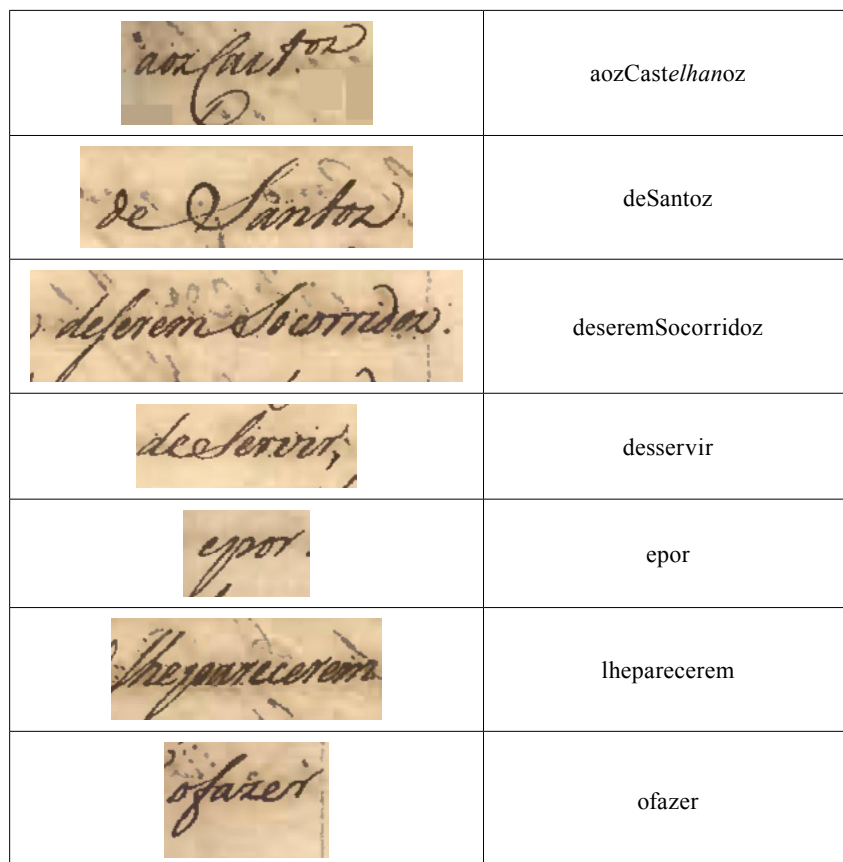 aoz Cast.oz
aozCastelhanoz
de Santoz
deSantoz
deserem Socorridoz.
deseremSocorridoz
deServir,
desservir
epor.
epor
lheparecerem
lheparecerem
ofazer
ofazer